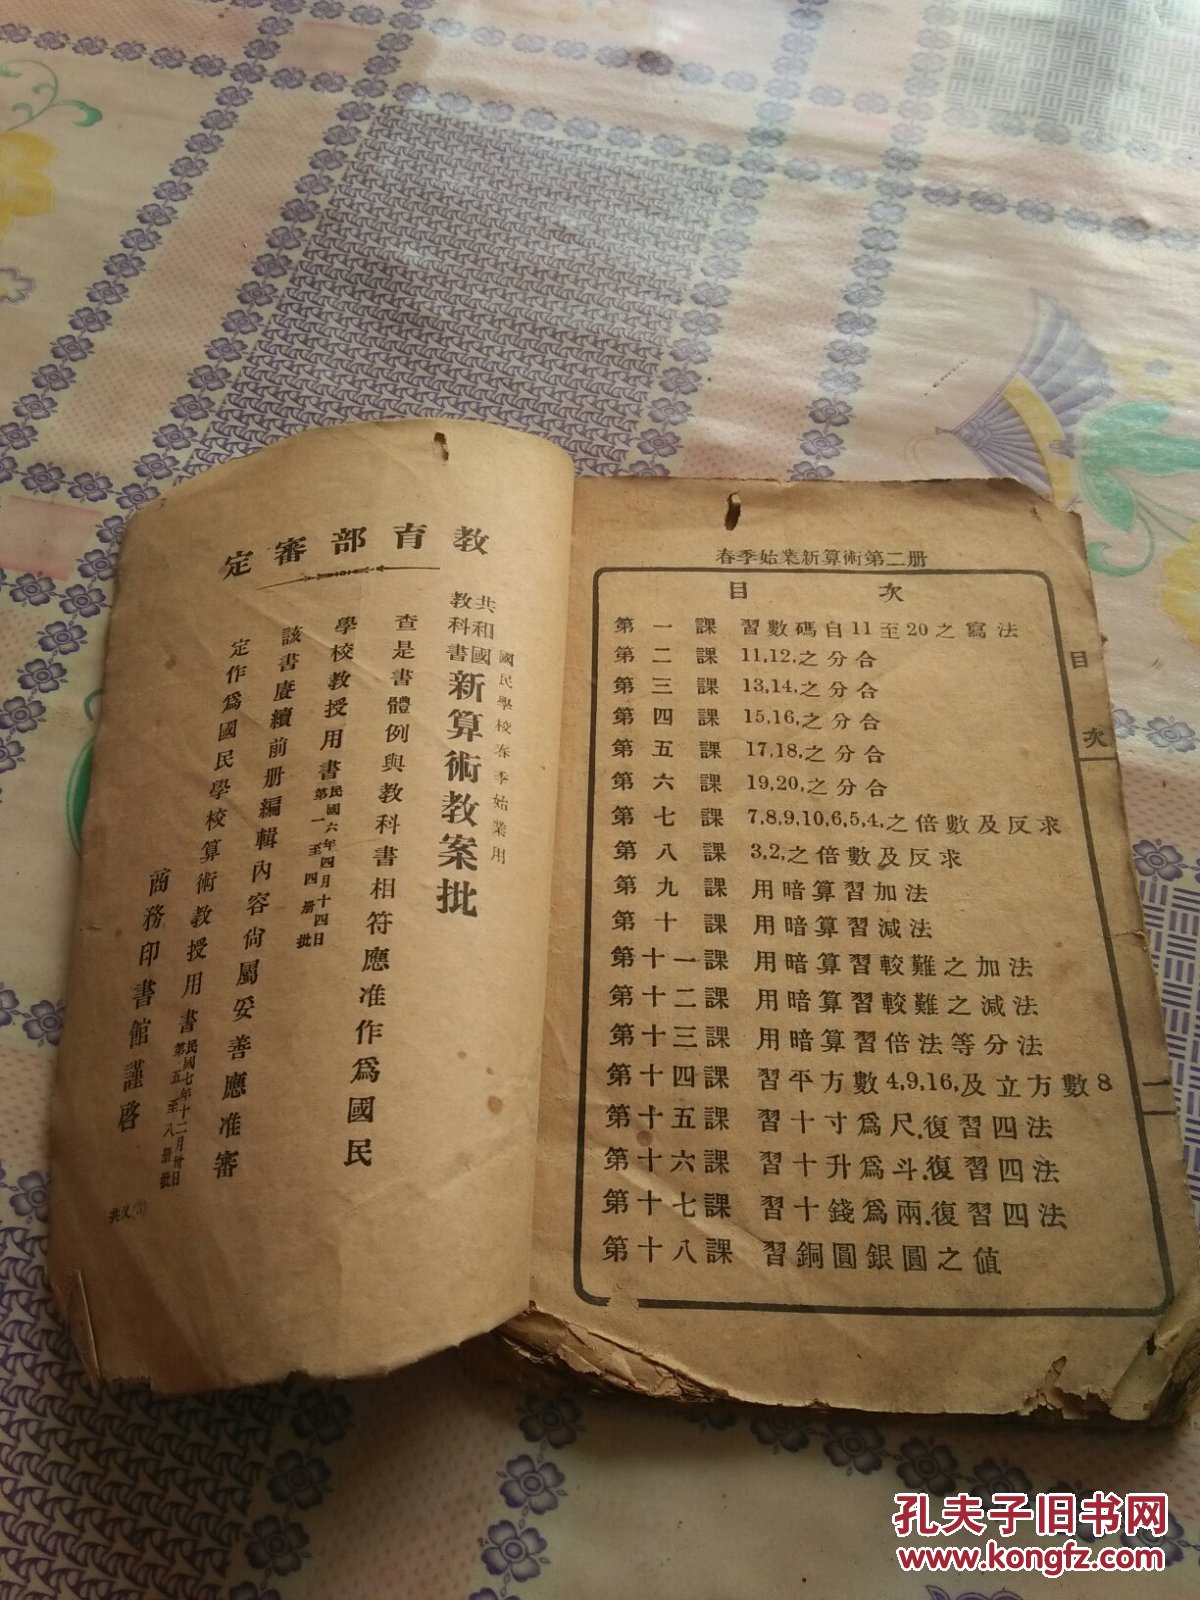 教育部審定
國民學校春季始業用
共和國教科書新算術教案批
查是書體例與教科書相符應准作爲國民
學校教授用書民國六年四月十四日第一至四册批
該書賡續前册編輯內容尙屬妥善應准審
定作爲國民學校算術教授用書民國七年十二月卅日第五至八册批
商務印書館謹啓
共义(3)
春季始業新算術第二册
目次
第一課 習數碼自11至20之寫法
第二課 11,12,之分合
第三課 13,14,之分合
第四課 15,16,之分合
第五課 17,18,之分合
第六課 19,20,之分合
第七課 7,8,9,10,6,5,4,之倍數及反求
第八課 3,2,之倍數及反求
第九課 用暗算習加法
第十課 用暗算習減法
第十一課 用暗算習較難之加法
第十二課 用暗算習較難之減法
第十三課 用暗算習倍法等分法
第十四課 習平方數4,9,16,及立方數8
第十五課 習十寸爲尺.復習四法
第十六課 習十升爲斗.復習四法
第十七課 習十錢爲兩.復習四法
第十八課 習銅圓銀圓之值
目次
一
孔夫子旧书网
www.kongfz.com